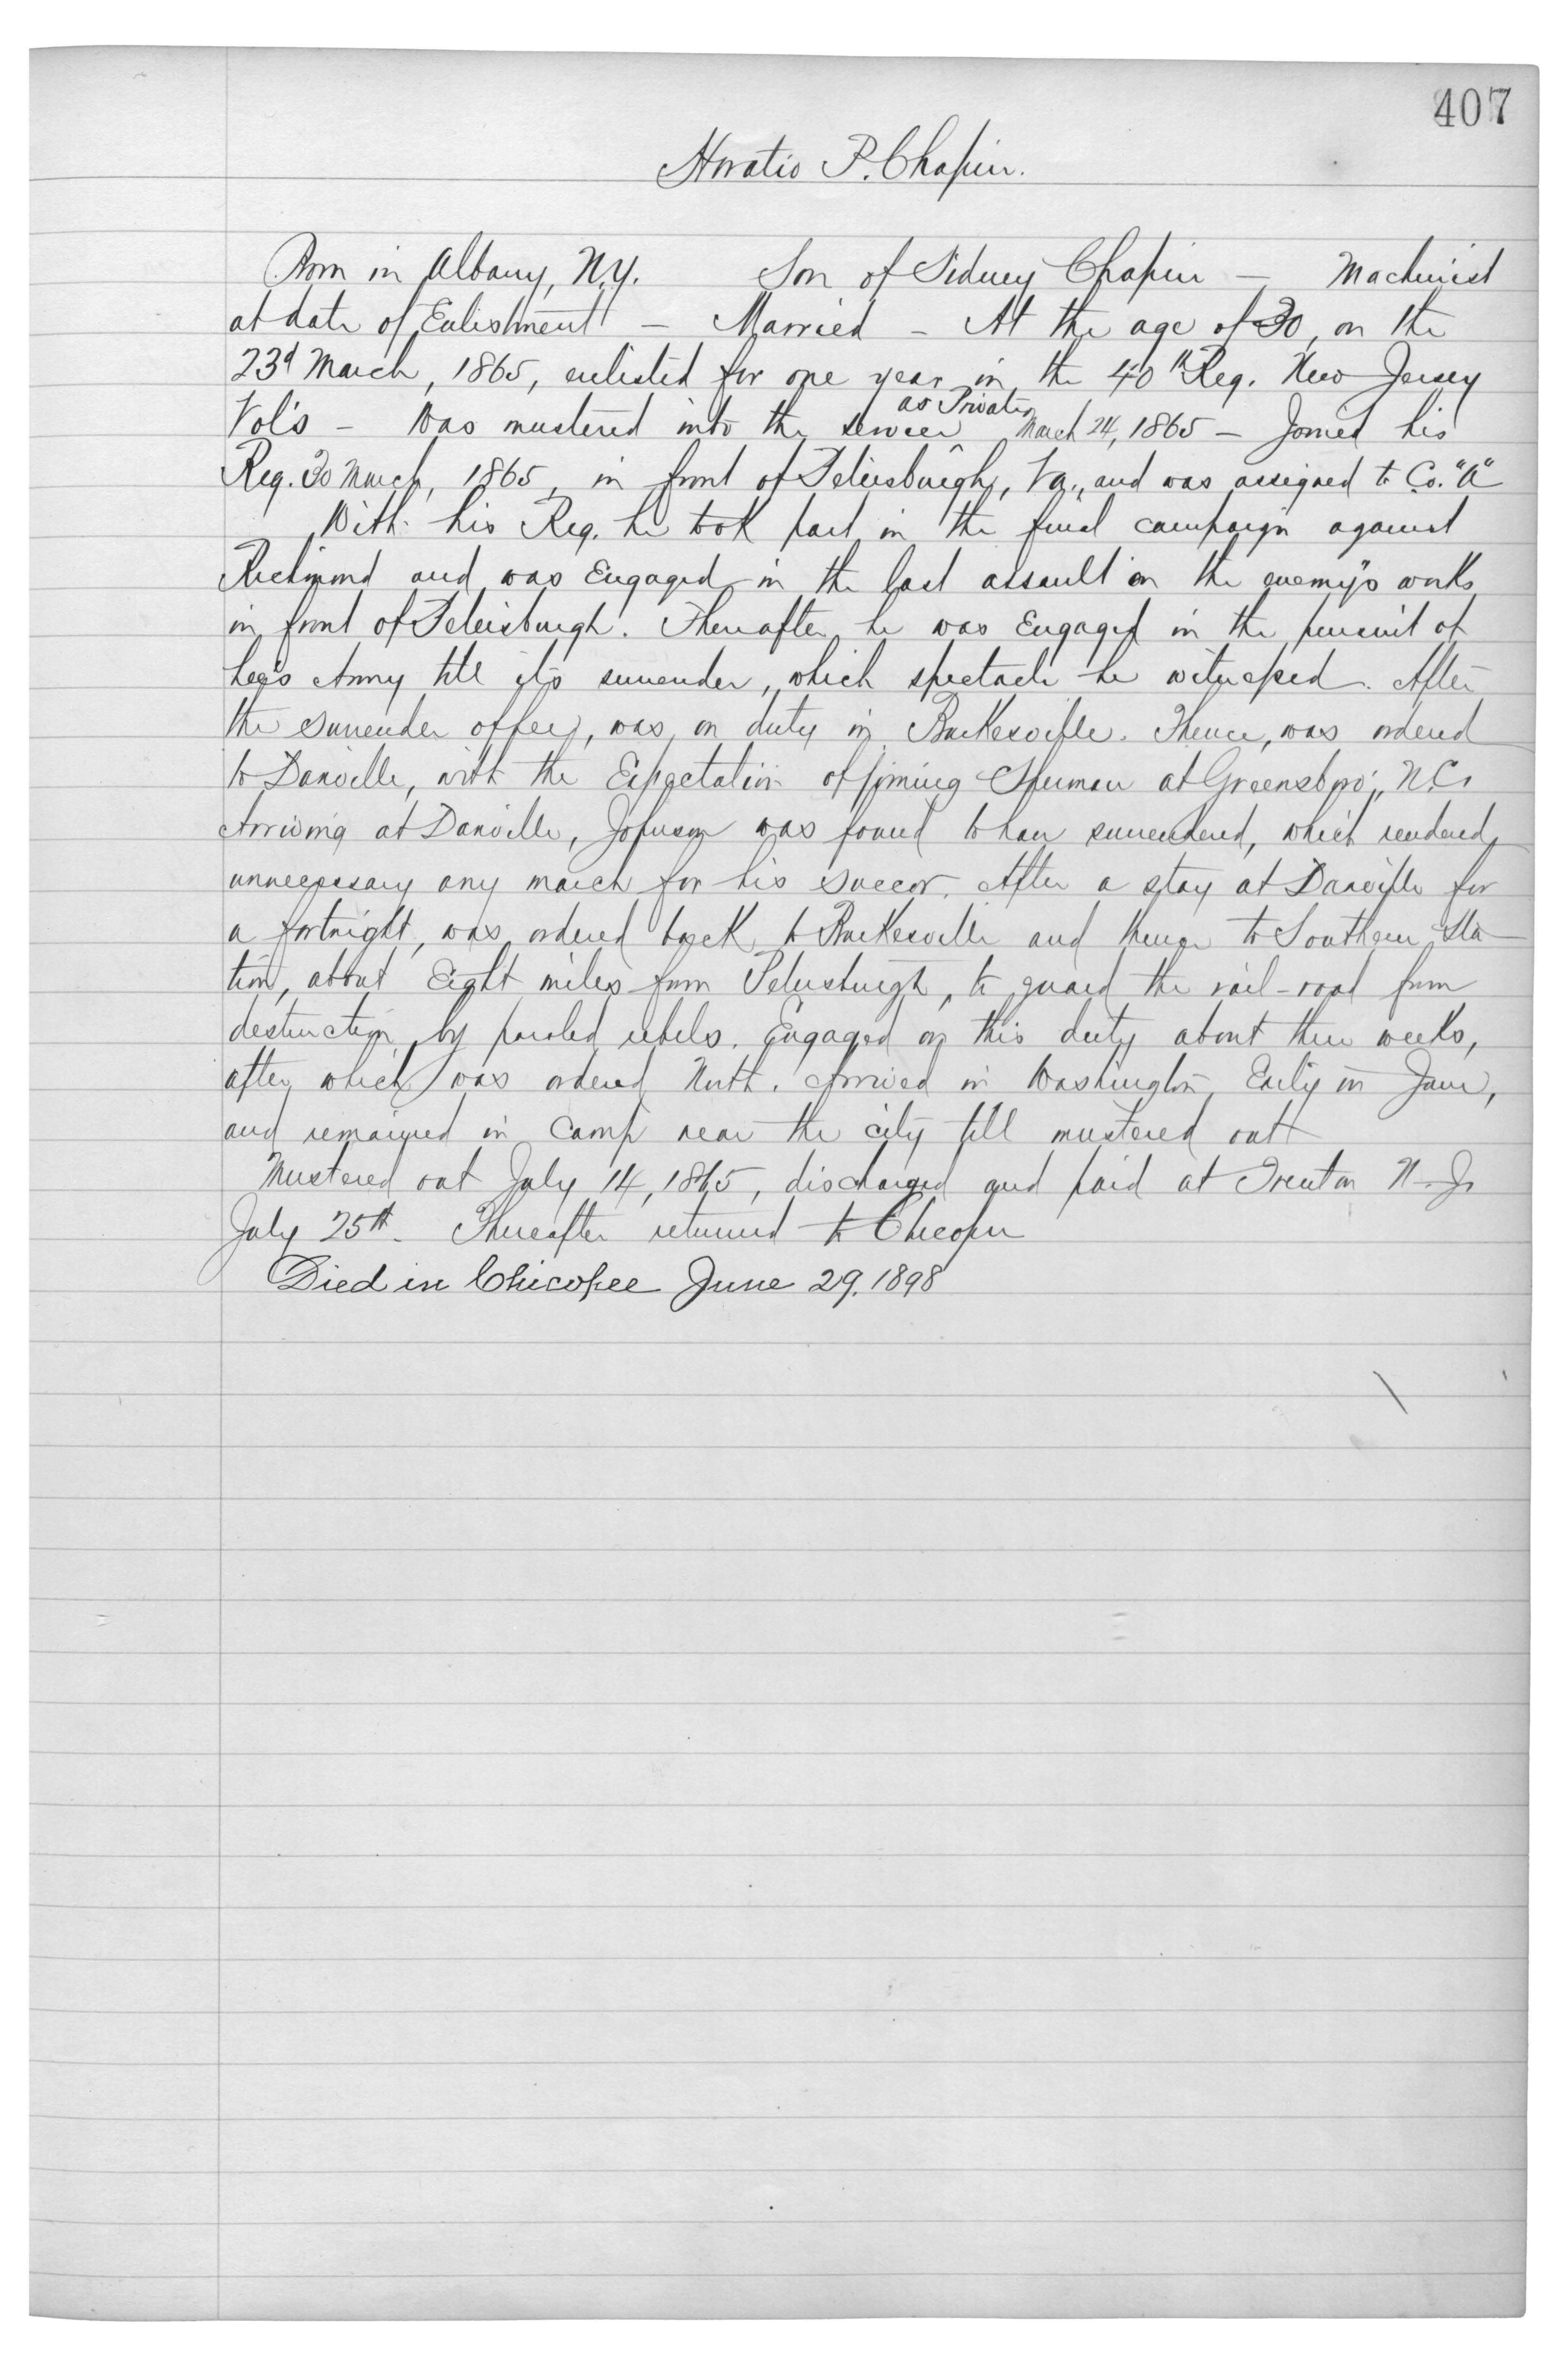 407
Horatio P. Chapin.
Born in Albany, N.Y. Son of Sidney Chapin — Machinist
at date of Enlistment — Married — At the age of 30, on the
23d March, 1865, enlisted for one year in the 40th Reg. New Jersey
Vol's — Was mustered into the service as Private March 24, 1865 — Joined his
Reg. 30 March, 1865, in front of Petersburgh, Va., and was assigned to Co. "A"
With his Reg. he took part in the final campaign against
Richmond and was Engaged in the last assault on the enemy's works
in front of Petersburgh. Thereafter he was Engaged in the pursuit of
Lee's Army till its surrender, which spectacle he witnessed. After
the surrender of Lee, was on duty in Burkesville. Thence, was ordered
to Danville, with the Expectation of joining Sherman at Greensboro', N.C.
Arriving at Danville, Johnson was found to have surrendered, which rendered
unnecessary any march for his succor. After a stay at Danville for
a fortnight, was ordered back to Burkesville and thence to Southern Sta-
tion, about Eight miles from Petersburgh, to guard the rail-road from
destruction by paroled rebels. Engaged on this duty about three weeks,
after which was ordered North. Arrived in Washington Early in June,
and remained in Camp near the city till mustered out
Mustered out July 14, 1865, discharged and paid at Trenton N.J.
July 25th. Thereafter returned to Chicopee
Died in Chicopee June 29. 1898